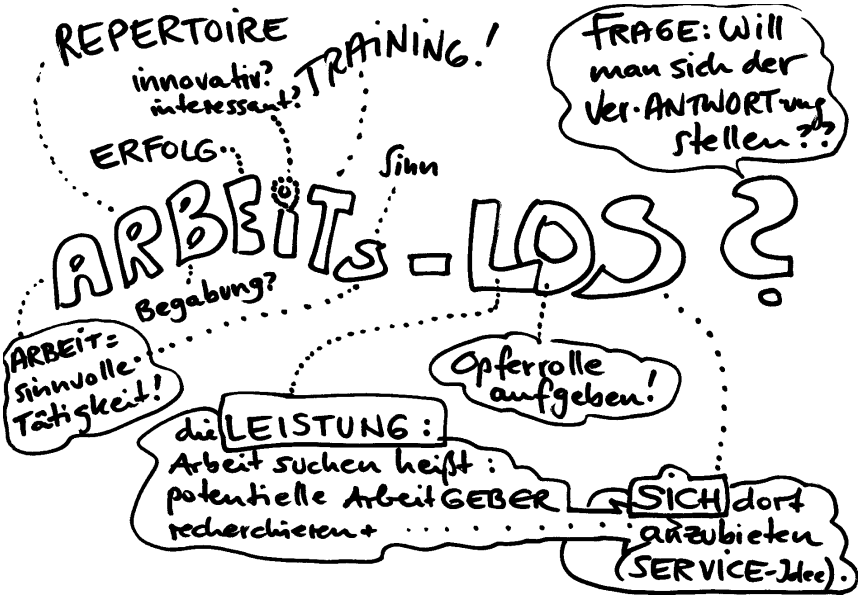 REPERTOIRE
innovativ?
interessant?
TRAiNiNG!
ERFOLG
Sinn
FRAGE: Will
man sich der
Ver·ANTWORTung
stellen??
ARBEiTs-LOS?
Begabung?
ARBEiT=
sinnvolle
Tätigkeit!
Opferrolle
aufgeben!
die LEISTUNG:
Arbeit suchen heißt:
potentielle ArbeitGEBER
recherchieren +
SICH dort
anzubieten
(SERVICE-Idee).